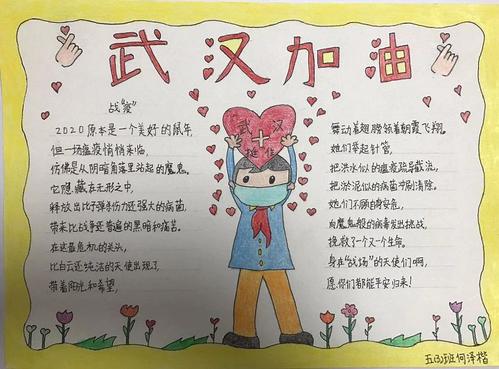 武汉加油
战“疫”
2020原本是一个美好的鼠年,
但一场瘟疫悄悄来临,
仿佛是从阴暗角落里站起的魔鬼。
它隐藏在无形之中,
释放出比子弹杀伤力还强大的病菌,
带来比战争还普遍的黑暗和痛苦。
在这最危机的关头,
比白云还纯洁的天使出现了,
带着阳光和希望,
武 汉
舞动着翅膀领着朝霞飞翔。
她们举起针管,
把洪水似的瘟疫疏导截流。
把淤泥似的病菌冲刷清除。
她们不顾自身安危,
向魔鬼般的病毒发出挑战,
挽救了一个又一个生命。
身在“战场”的天使们啊,
愿你们都能平安归来!
五(3)班何泽楷